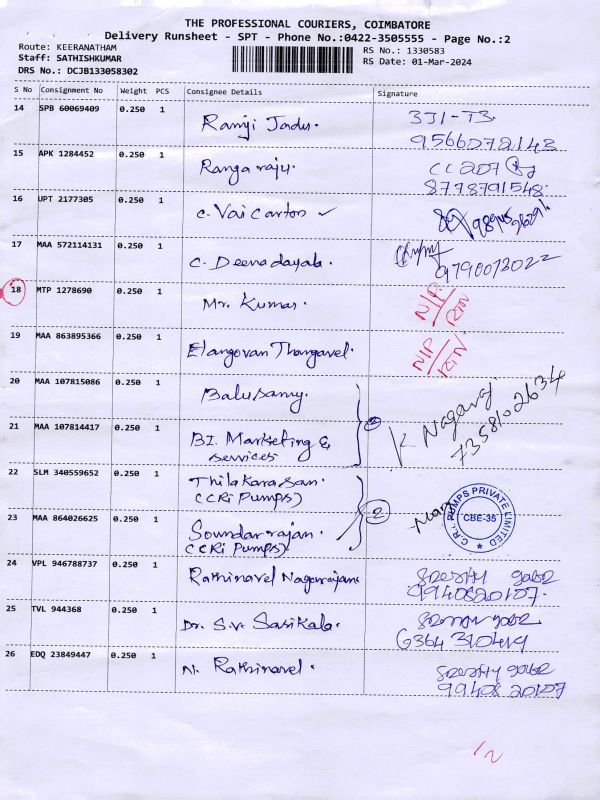 THE PROFESSIONAL COURIERS, COIMBATORE
Delivery Runsheet - SPT - Phone No.:0422-3505555 - Page No.:2
Route: KEERANATHAM
RS No.: 1330583
Staff: SATHISHKUMAR
RS Date: 01-Mar-2024
DRS No.: DCJB133058302
S No Consignment No Weight PCS Consignee Details Signature
14 SPB 60069409 0.250 1 Ramji Jadu. 331-T3
9566072143
15 APK 1284452 0.250 1 Rangaraju. CC207
8778791548
16 UPT 2177305 0.250 1 C. Vaicarton ✓
17 MAA 572114131 0.250 1 C. Deenadayab. 9790072022
18 MTP 1278690 0.250 1 Mr. Kumar. N/P
RTN
19 MAA 863895366 0.250 1 Elangovan Thangavel. N/P
RTN
20 MAA 107815086 0.250 1 Balusamy.
K Nagaraj
7358102634
21 MAA 107814417 0.250 1 BI. Marketing &
services
22 SLM 340559652 0.250 1 Thilakarasan.
(CRi Pumps)
2
C.R.I. PUMPS PRIVATE LIMITED
CBE-35
23 MAA 864026625 0.250 1 Soundarrajan.
(CRi Pumps)
24 VPL 946788737 0.250 1 Rathinavel Nagarajan
9940820107.
25 TVL 944368 0.250 1 Dr. S.V. Sasikala.
6364310419
26 EDQ 23849447 0.250 1 N. Rathinavel.
9940820107